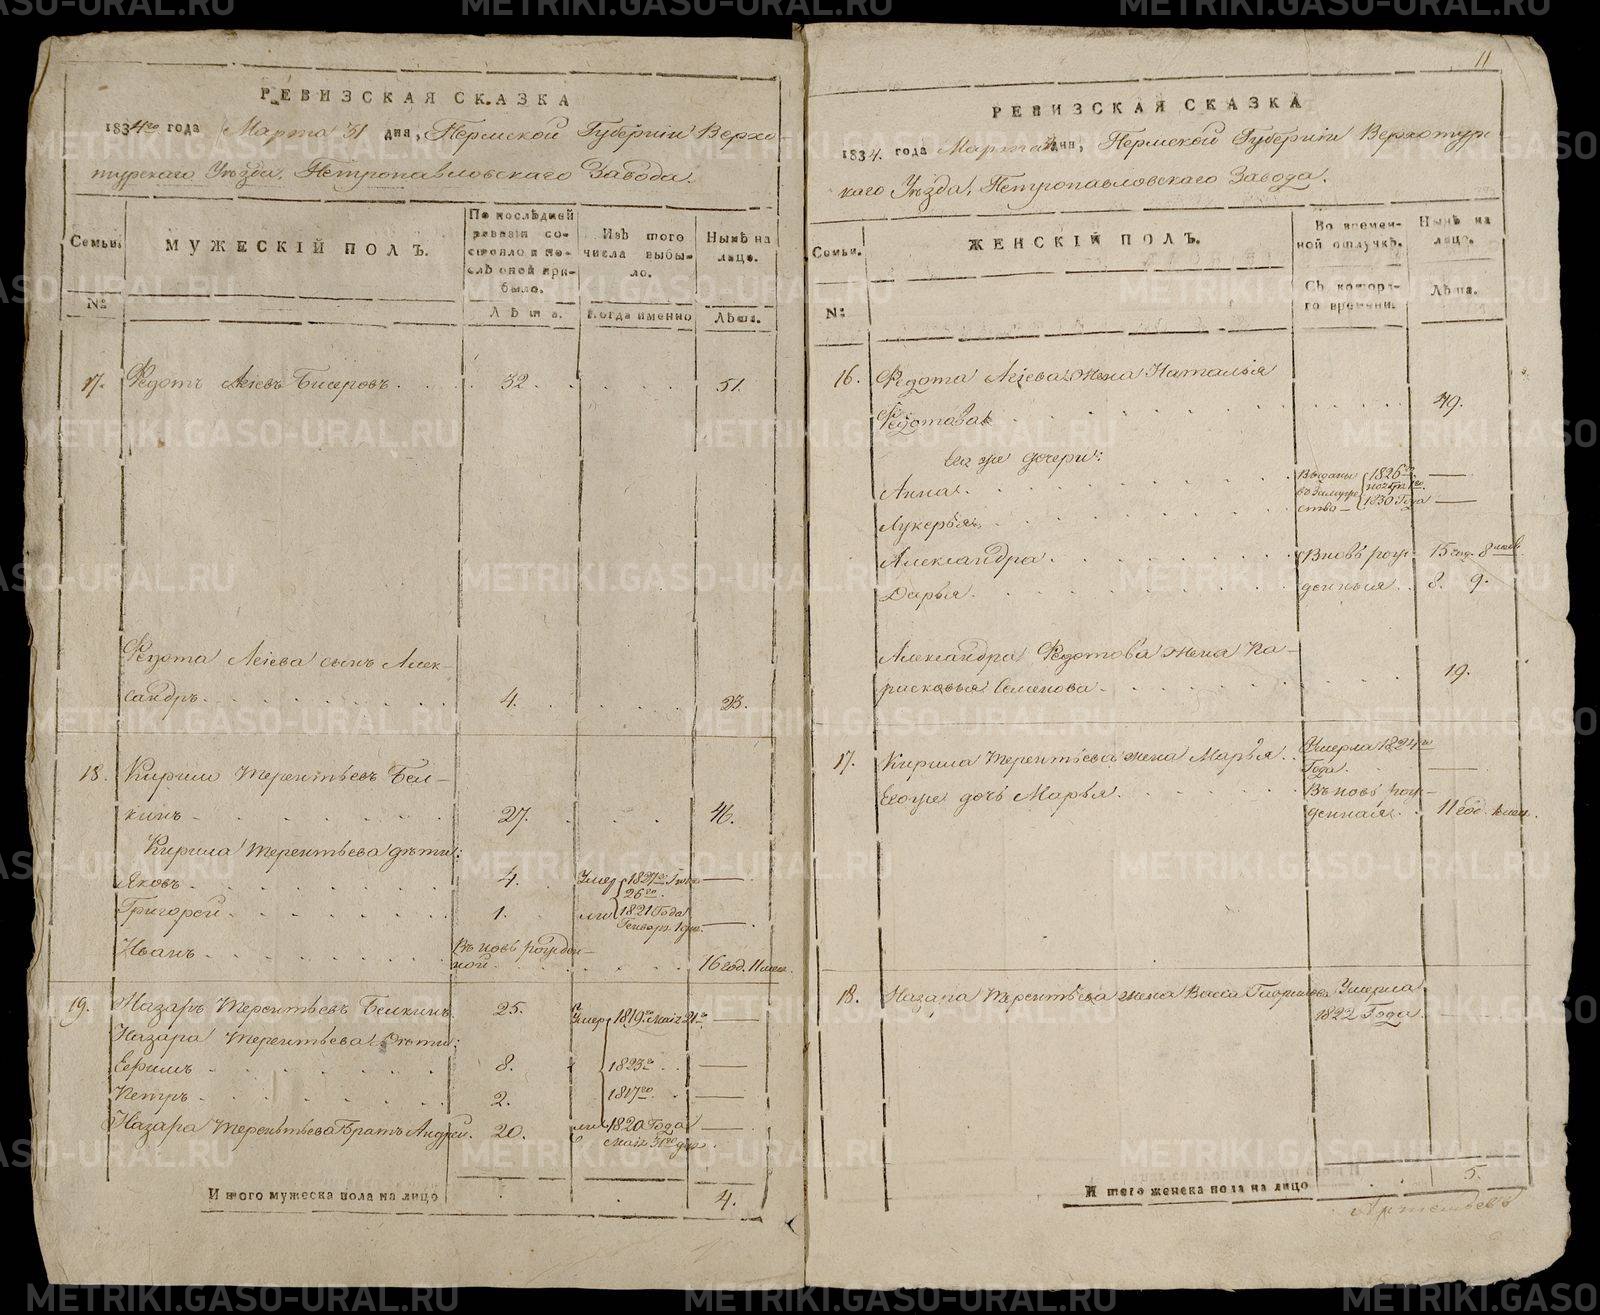 РЕВИЗСКАЯ СКАЗКА
1834го года Марта 31 дня, Пермской Губерніи Верхо-
турскаго Уѣзда, Петропавловскаго Завода.
Семьи.
МУЖЕСКІЙ ПОЛЪ.
По послѣдней ревизіи состояло и послѣ оной прибыло.
Изъ того числа выбыло.
Нынѣ на лицо.
№
Лѣта.
Когда именно
Лѣта.
17. Федотъ Бисеровъ. 32. 51.
Федота сынъ Алек-
сандръ. 4. 23.
18. Кирило Терентьевъ Бел-
кинъ. 27. 46.
Кирила Терентьева дѣти:
Яковъ. 4. Умер 1827го Года
26го
Григорей. 1. ли 1821 Года
Генвар. 1 дня
Иванъ. Въ новь рожден-
ной. 16 год. 11 мес.
19. Назаръ Терентьевъ Белкинъ. 25. Умер 1819го маія 21го
Назара Терентьева дѣти:
Ефимъ. 8. 1823го
Петръ. 2. 1817го
Назара Терентьева Братъ Андрей. 20. ли 1820 Года
маія 31го дня
Итого мужеска пола на лицо 4.
11
РЕВИЗСКАЯ СКАЗКА
1834. года Марта дня, Пермской Губерніи Верхотурс
каго Уѣзда, Петропавловскаго Завода.
Семьи.
ЖЕНСКІЙ ПОЛЪ.
Во временной отлучкѣ.
Нынѣ на лицо.
№
Съ котораго времени.
Лѣта.
16. Федота жена Наталья
Федотова 49.
Ея же дочери:
Анна. Выданы 1826го
Лукерья. въ замужство 1830 Года
Александра. Вновь рож- 15 год. 8 мес
Дарья. денныя. 8. 9.
Александра Федотова жена Па-
расковья Семенова. 19.
17. Кирила Терентьева жена Марья. Умерла 1824го
Года.
Его же дочь Марья. Въ новь рож-
денная. 11 год. мес.
18. Назара Терентьева жена Васса Гаврилова Умерла
1822 Года
Итого женска пола на лицо 5.
METRIKI.GASO-URAL.RU